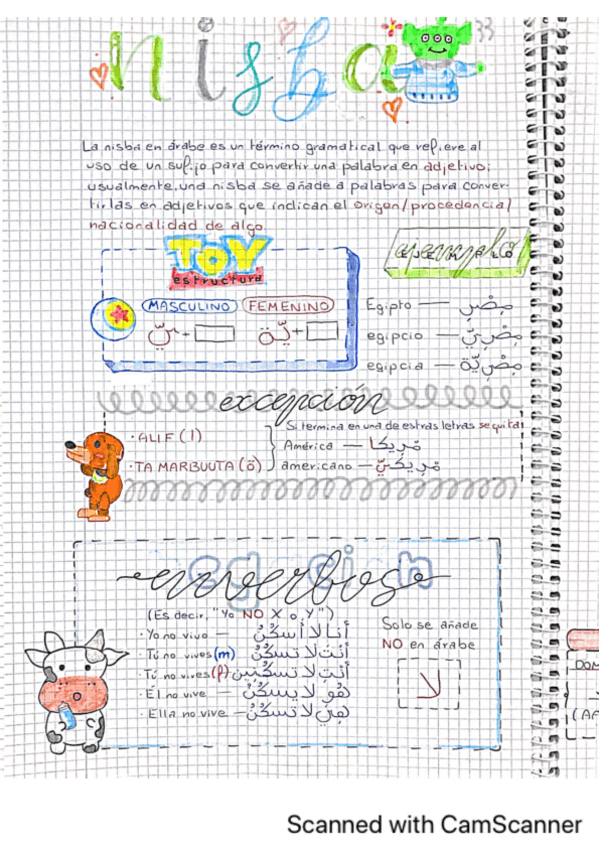 nisba
La nisba en árabe es un término gramatical que refiere al
uso de un sufijo para convertir una palabra en adjetivo;
usualmente, una nisba se añade a palabras para conver-
tirlas en adjetivos que indican el origen/procedencia/
nacionalidad de algo.
TOY
estructura
MASCULINO FEMENINO
يّ + يّة +
ejemplo
EJEMPLO
Egipto — مِصْر
egipcio — مِصْرِيّ
egipcia — مِصْرِيّة
excepción
Si termina en una de estras letras se quita
· ALIF (ا)
· TA MARBUUTA (ة)
América — مْرِيكا
americano — مْرِيكيّ
en verbos
(Es decir, "Yo NO X o Y")
· Yo no vivo — أنا لا أسكُنُ
· Tú no vives (m) أنتَ لا تسكُنُ
· Tú no vives (f) أنتِ لا تسكُنين
· Él no vive — هُوَ لا يسكُنُ
· Ella no vive — هِيَ لا تسكُنُ
Solo se añade
NO en árabe
لا
DOM
Scanned with CamScanner